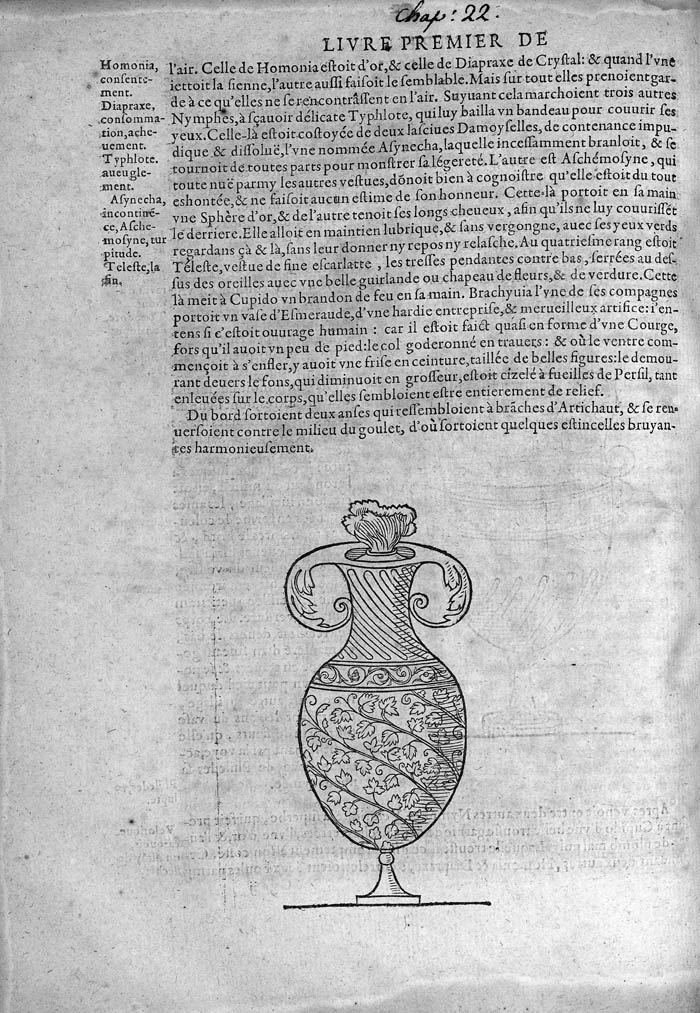 Chap: 22.
LIVRE PREMIER DE
Homonia,
consente-
ment.
Diapraxe,
consomma-
tion, ache-
uement.
Typhlote.
aueugle-
ment.
Asynecha,
incontinē-
ce, Asche-
mosyne, tur
pitude.
Teleste, la
fin.
l'air. Celle de Homonia eſtoit d'or, & celle de Diapraxe de Cryſtal: & quand l'vne
iettoit la ſienne, l'autre auſſi faiſoit le ſemblable. Mais ſur tout elles prenoient gar-
de à ce qu'elles ne ſe rencontrâſſent en l'air. Suyuant cela marchoient trois autres
Nymphes, à ſçauoir délicate Typhlote, qui luy bailla vn bandeau pour couurir ſes
yeux. Celle-là eſtoit coſtoyée de deux laſciues Damoyſelles, de contenance impu-
dique & diſſoluë, l'vne nommée Aſynecha, laquelle inceſſamment branloit, & ſe
tournoit de toutes parts pour monſtrer ſa légereté. L'autre eſt Aſchémoſyne, qui
toute nuë parmy les autres veſtues, dōnoit bien à cognoiſtre qu'elle eſtoit du tout
eshontée, & ne faiſoit aucun eſtime de ſon honneur. Cette-là portoit en ſa main
vne Sphère d'or, & de l'autre tenoit ſes longs cheueux, afin qu'ils ne luy couuriſſēt
le derriere. Elle alloit en maintien lubrique, & ſans vergongne, auec ſes yeux verds
regardans çà & là, ſans leur donner ny repos ny relaſche. Au quatrieſme rang eſtoit
Téleſte, veſtue de fine eſcarlatte, les treſſes pendantes contre bas, ſerrées au deſ-
ſus des oreilles auec vne belle guirlande ou chapeau de fleurs, & de verdure. Cette
là meit à Cupido vn brandon de feu en ſa main. Brachyuia l'vne de ſes compagnes
portoit vn vaſe d'Eſmeraude, d'vne hardie entrepriſe, & merueilleux artifice: i'en-
tens ſi c'eſtoit ouurage humain : car il eſtoit faict quaſi en forme d'vne Courge,
fors qu'il auoit vn peu de pied: le col goderonné en trauers : & où le ventre com-
mençoit à s'enfler, y auoit vne friſe en ceinture, taillée de belles figures: le demou-
rant deuers le fons, qui diminuoit en groſſeur, eſtoit cizelé à fueilles de Perſil, tant
enleuées ſur le corps, qu'elles ſembloient eſtre entierement de relief.
Du bord ſortoient deux anſes qui reſſembloient à brāches d'Artichaut, & ſe ren-
uerſoient contre le milieu du goulet, d'où ſortoient quelques eſtincelles bruyan-
tes harmonieuſement.